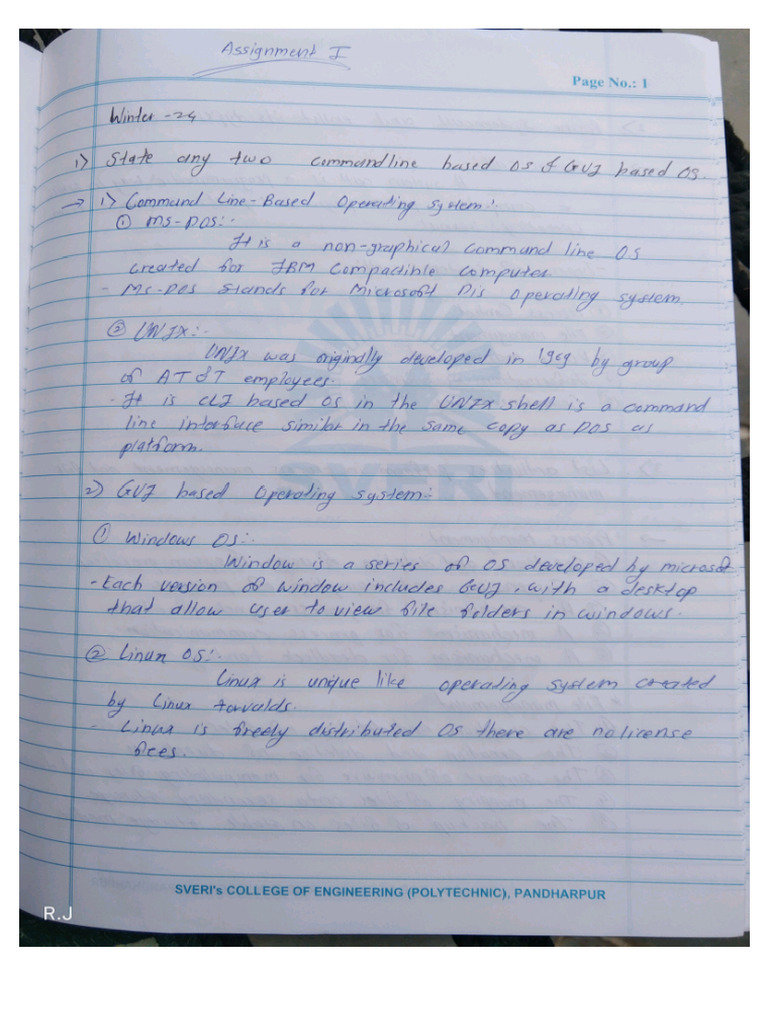 Assignment I
Page No.: 1
Winter -24
1) State any two commandline based OS & GUI based OS.
→ 1) Command Line-Based Operating System:
① MS-DOS:-
It is a non-graphical command line OS
created for IBM Compactinle computer.
- Ms-DOS stands for Microsoft Dis Operating system.
② UNIX:-
UNIX was originally developed in 1969 by group
of AT&T employees.
- It is CLI based OS in the UNIX shell is a command
line interface similar in the same copy as DOS as
platform.
SVERI
2) GUI based Operating system:-
① Windows OS:-
Window is a series of OS developed by microsoft
- Each version of window includes GUI, with a desktop
that allow user to view file folders in windows.
② Linux OS:-
Linux is unique like operating system created
by Linux torvalds.
- Linux is freely distributed OS there are no license
fees.
SVERI's COLLEGE OF ENGINEERING (POLYTECHNIC), PANDHARPUR
R.J